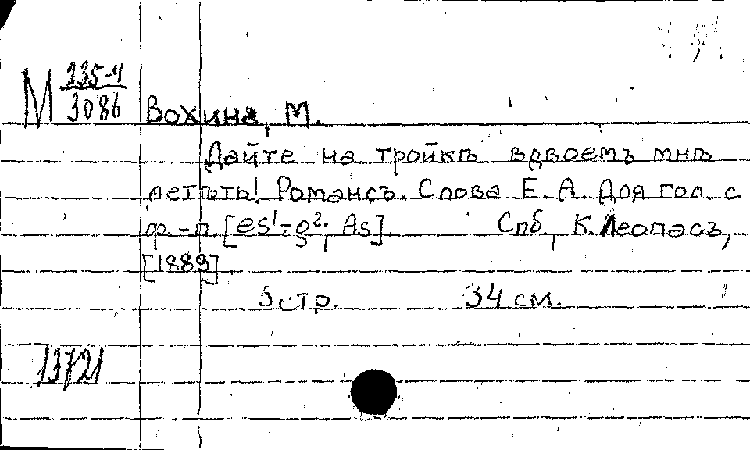 М 335-4
3086
Вохина, М.
Дайте на тройкѣ вдвоемъ мнѣ
летѣть! Романсъ. Слова Е. А. Для гол. с
ф.-п. [es¹-g²; As] Спб, К. Леопасъ,
[1889].
5 стр. 34 см.
13721